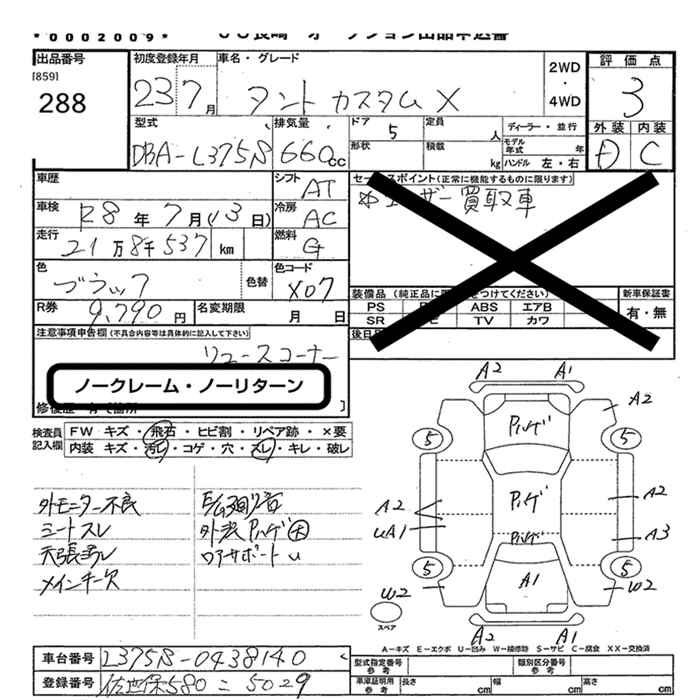 *0002009*
出品番号
[859]
288
初度登録年月
23 7月
車名・グレード
タント カスタム X
2WD
・
4WD
評価点
3
外装 内装
D C
型式
DBA-L375S
排気量
660cc
ドア
5
形状
定員
人
積載
kg
ディーラー・並行
モデル
年式 年
ハンドル 左・右
車歴
シフト
AT
車検
R8年7月(13日)
冷房
AC
走行
21万8千537 km
燃料
G
色
ブラック
色替
色コード
X07
R券
9,790円
名変期限
月 日
セールスポイント(正常に機能するものに限ります)
ユーザー買取車
装備品
PS
ABS
エアB
SR
TV
カワ
新車保証書
有・無
注意事項申告欄(不具合内容等は具体的に記入して下さい)
リユースコーナー
ノークレーム・ノーリターン
検査員
記入欄
FW キズ・飛石・ヒビ割・リペア跡・×要
内装 キズ・汚レ・コゲ・穴・スレ・キレ・破レ
外モニター不良
シートスレ
天張汚レ
メインキー欠
外装Pハゲ大
A2 A1
Pハゲ
A2
5 5
Pハゲ
A2
A2
UA1
A3
Pハゲ
5 5
A1
W2
W2
スペア
A2 A1
A-キズ E-エクボ U-凹み W-補修跡 S-サビ C-腐食 XX-交換済
車台番号
L375S-0438140
登録番号
佐世保580 ニ 5029
型式指定番号
参考
類別区分番号
参考
車庫証明用
参考
長さ cm
幅 cm
高さ cm